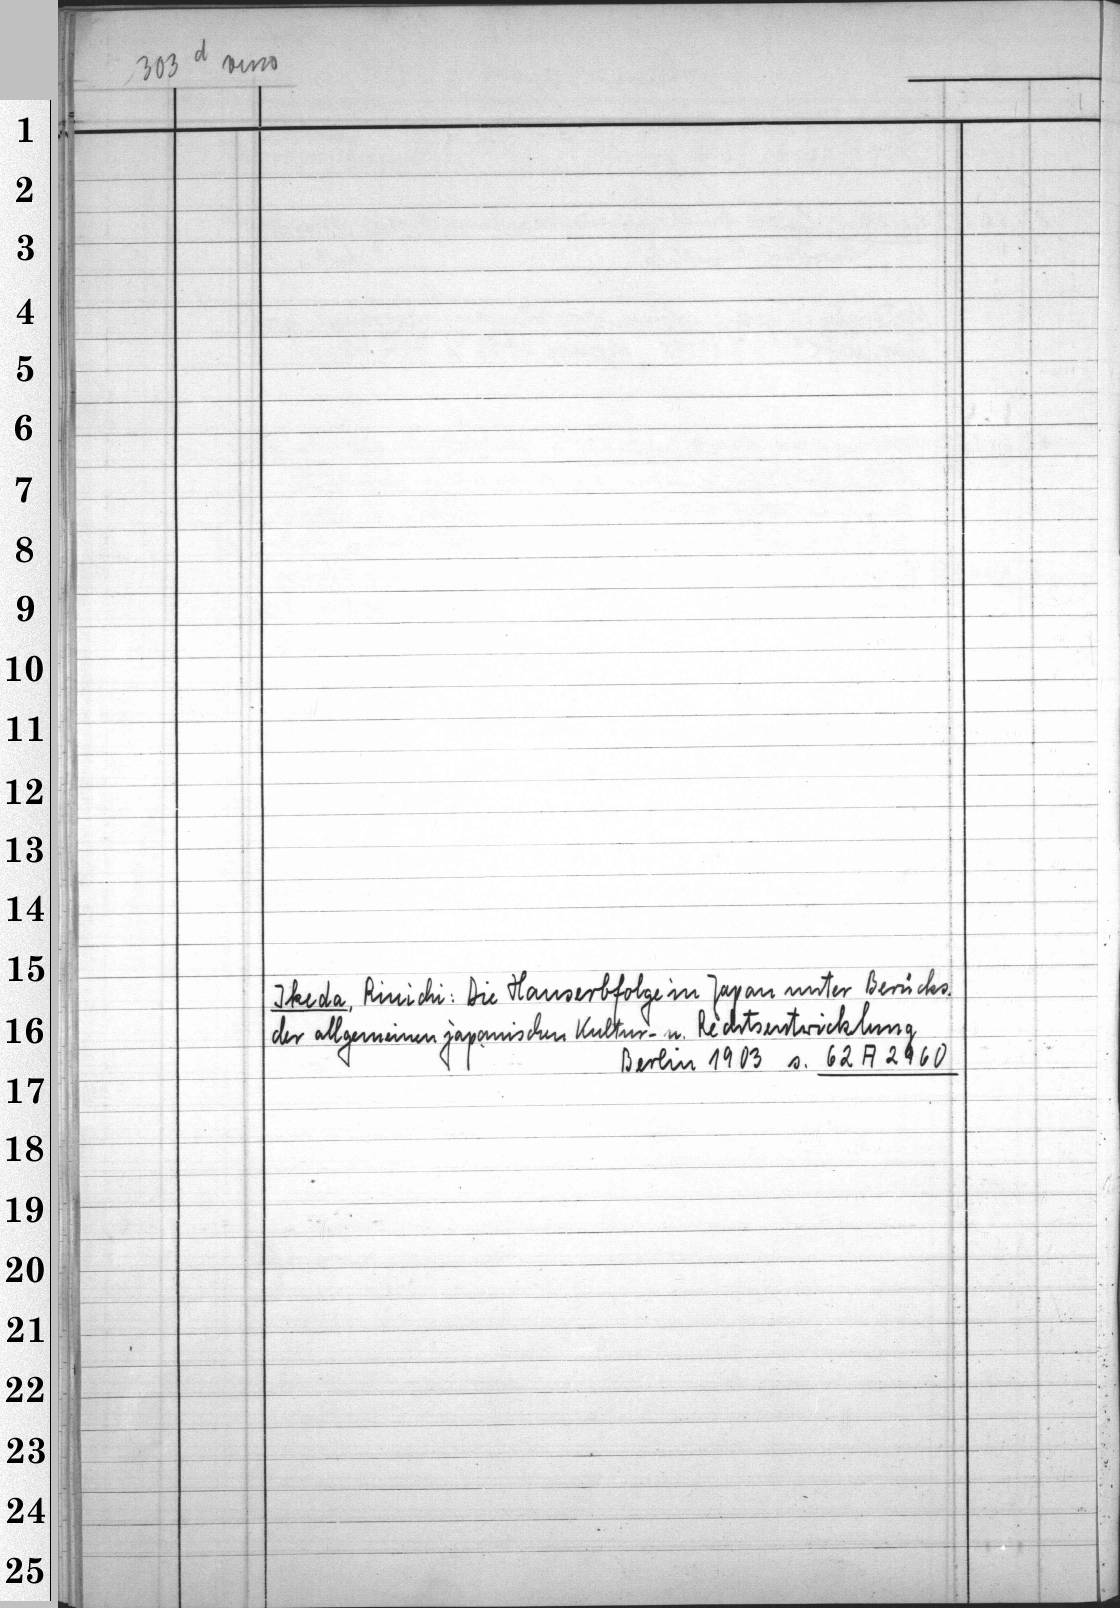 303 d verso
1
2
3
4
5
6
7
8
9
10
11
12
13
14
15
Ikeda, Rinichi: Die Hauserbfolge in Japan unter Berücks.
16
der allgemeinen japanischen Kultur- u. Rechtsentwicklung
Berlin 1903 s. 62 A 2960
17
18
19
20
21
22
23
24
25